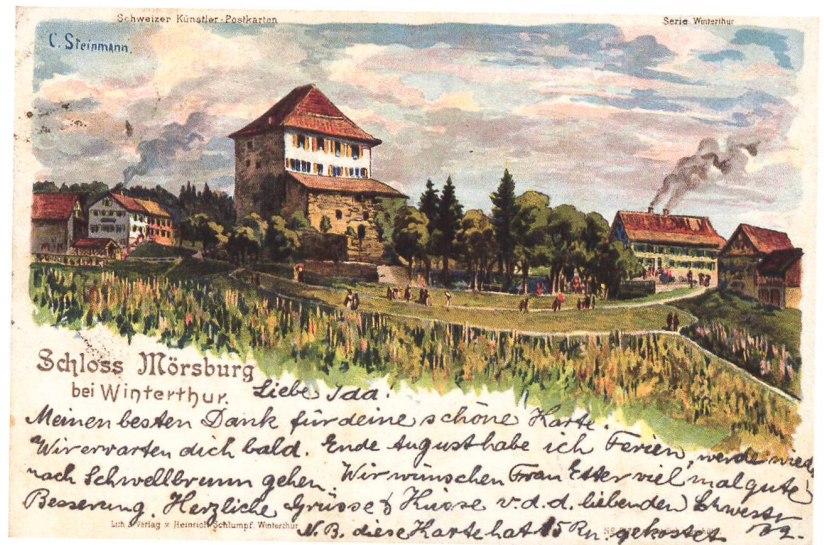 Schweizer Künstler-Postkarten
Serie Winterthur
C. Steinmann.
Schloss Mörsburg
bei Winterthur.
Liebe Ida!
Meinen besten Dank für deine schöne Karte.
Wir erwarten dich bald. Ende August habe ich Ferien, werde wied
nach Schwellbrunn gehen Wir wünschen Frau Etter viel mal gute
Besserung. Herzliche Grüsse & Küsse v. d. d. liebenden Schwester
N. B. diese Karte hat 15 Rp. gekostet
Lith. & Verlag v. Heinrich Schlumpf. Winterthur